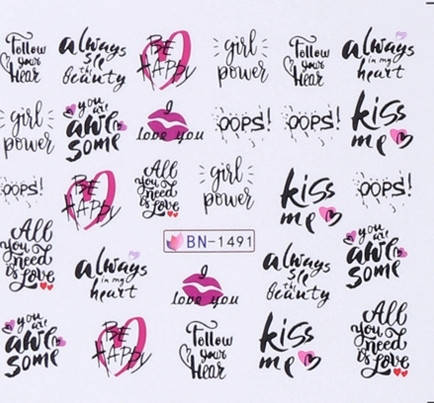 Follow
your
Hear
always
see
the
beauty
BE
HAPPY
girl
power
Follow
your
Hear
always
in my
heart
girl
power
you are
awe
some
I
love you
OOPS!
OOPS!
kiss
me
OOPS!
BE
HAPPY
All
You need
is Love
girl
power
kiss
me
OOPS!
All
You need
is Love
always
in my
heart
BN-1491
I
love you
always
see
the
beauty
you are
awe
some
you are
awe
some
BE
HAPPY
Follow
your
Hear
kiss
me
All
You need
is Love